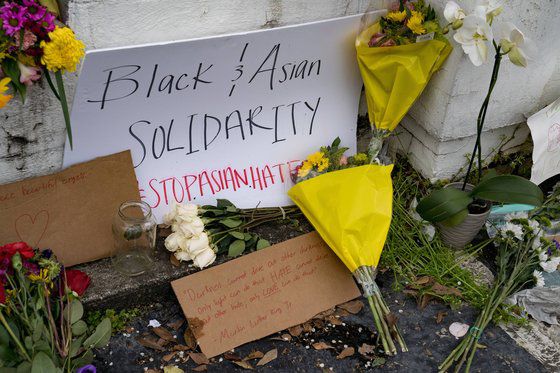 Black & Asian
SOLIDARITY
#STOP.ASIAN.HATE
"Darkness cannot drive out other darkness
only light can do that. HATE cannot drive
out hate, only LOVE can do that."
- Martin Luther King Jr